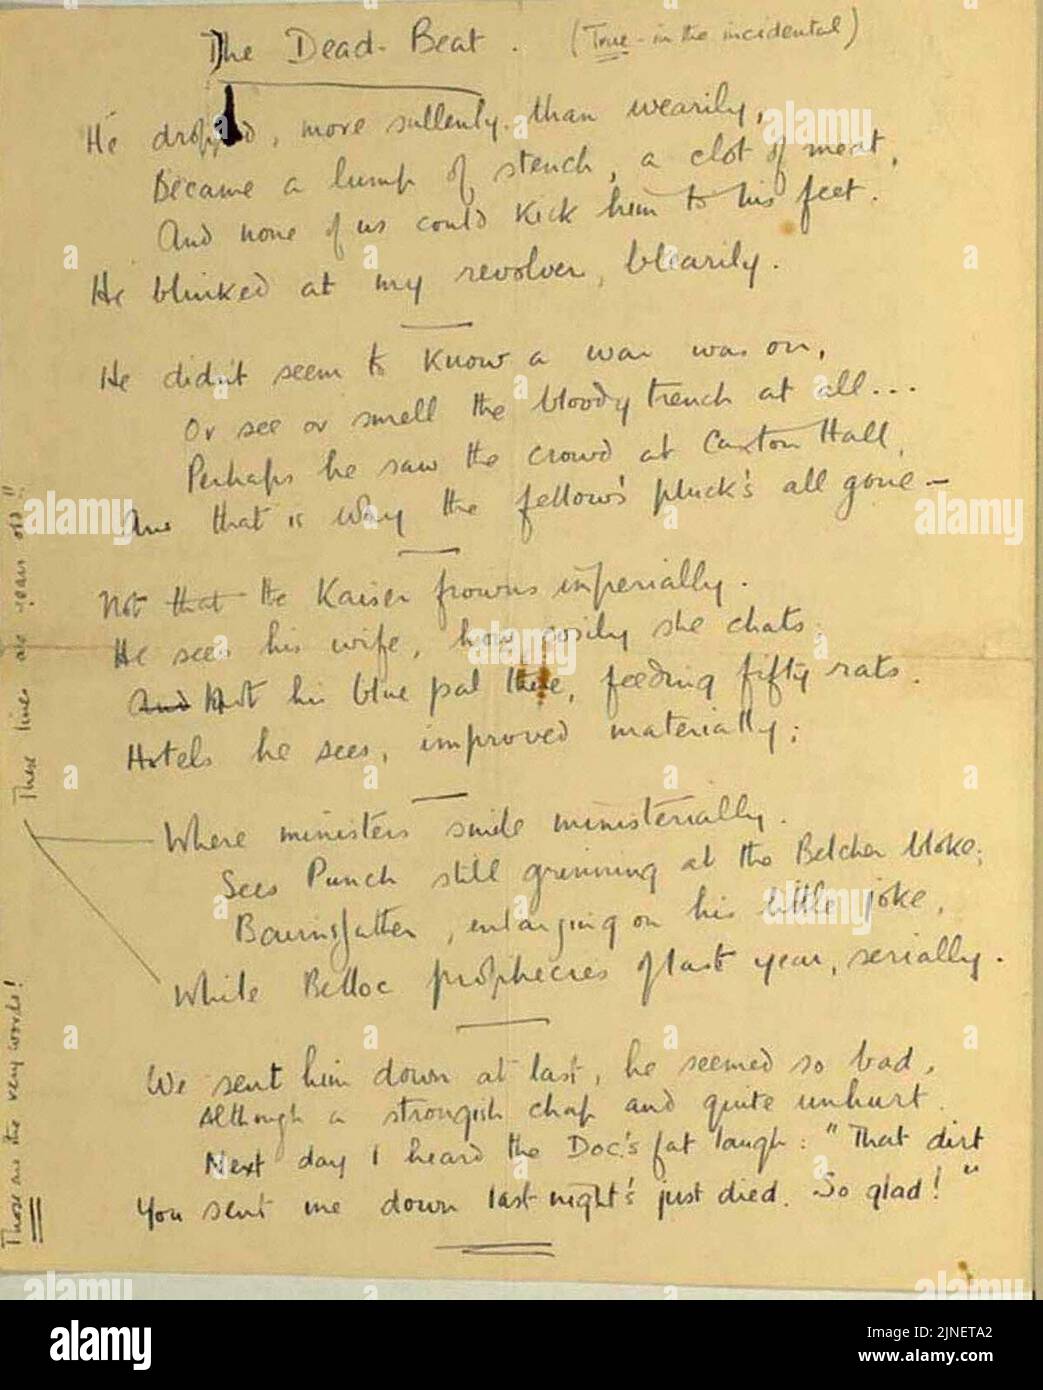 The Dead-Beat. (True - in the incidental)
He dropped, more sullenly, than wearily,
Became a lump of stench, a clot of meat,
And none of us could kick him to his feet.
He blinked at my revolver, blearily.
He didn't seem to know a war was on,
Or see or smell the bloody trench at all...
Perhaps he saw the crowd at Caxton Hall,
And that is why the fellow's pluck's all gone —
Not that the Kaiser frowns imperially.
He sees his wife, how cosily she chats;
And Not his blue pal there, feeding fifty rats.
Hotels he sees, improved materially;
Where ministers smile ministerially.
Sees Punch still grinning at the Belcher bloke;
Bairnsfather, enlarging on his little joke,
While Belloc prophecies of last year, serially.
We sent him down at last, he seemed so bad,
Although a strongish chap and quite unhurt.
Next day I heard the Doc's fat laugh: "That dirt
You sent me down last night's just died. So glad!"
These lines are years old!!
Those are the very words!
alamy
alamy
Image ID: 2JNETA2
www.alamy.com